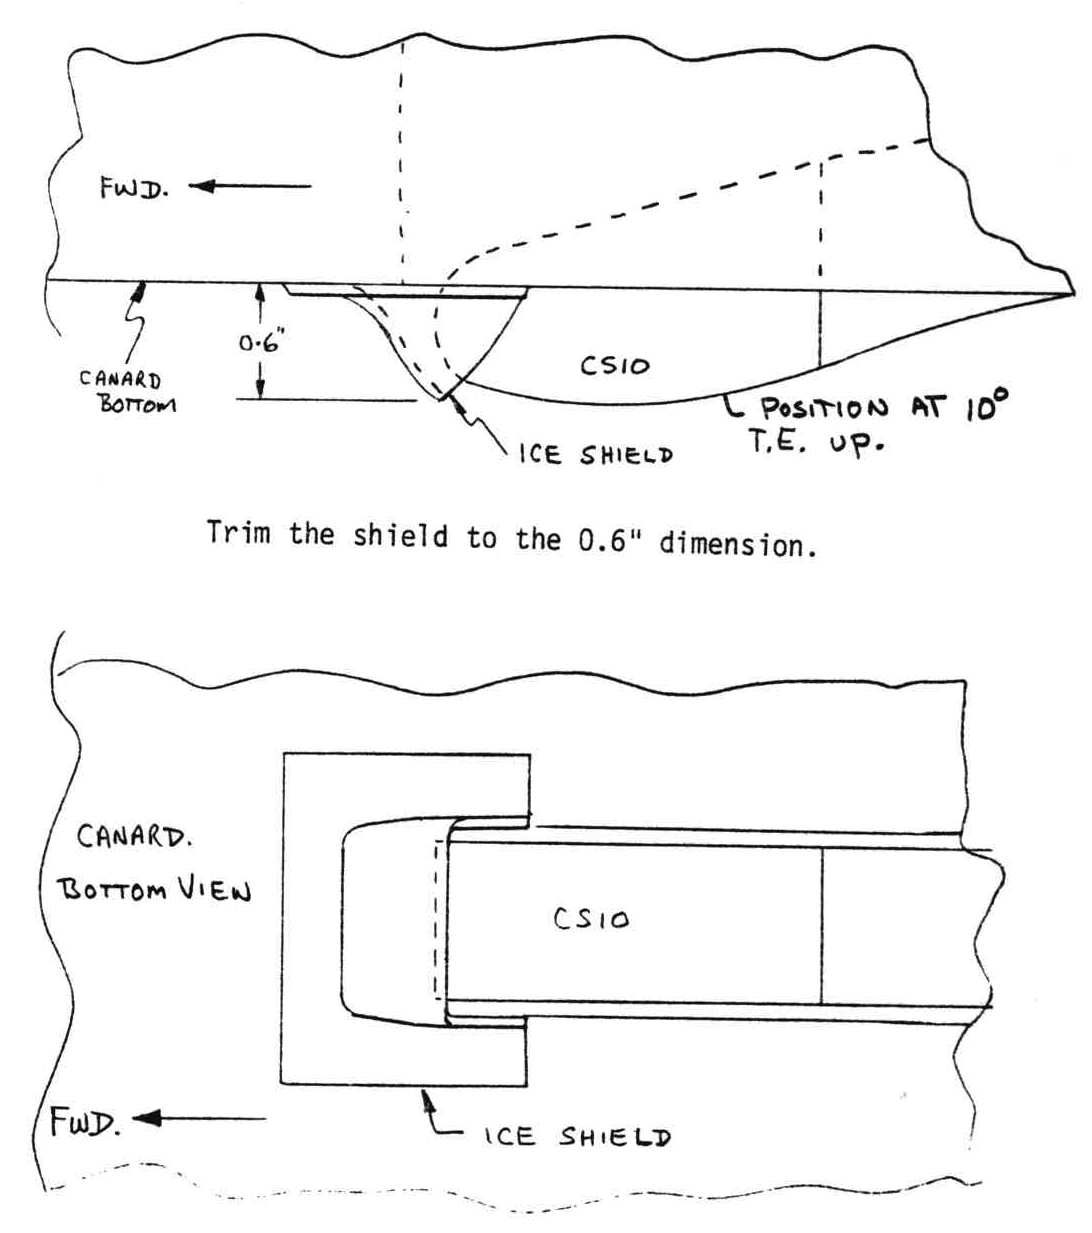 FWD.
0.6"
CANARD
BOTTOM
CS10
POSITION AT 10°
T.E. UP.
ICE SHIELD
Trim the shield to the 0.6" dimension.
CANARD.
BOTTOM VIEW
CS10
FWD.
ICE SHIELD